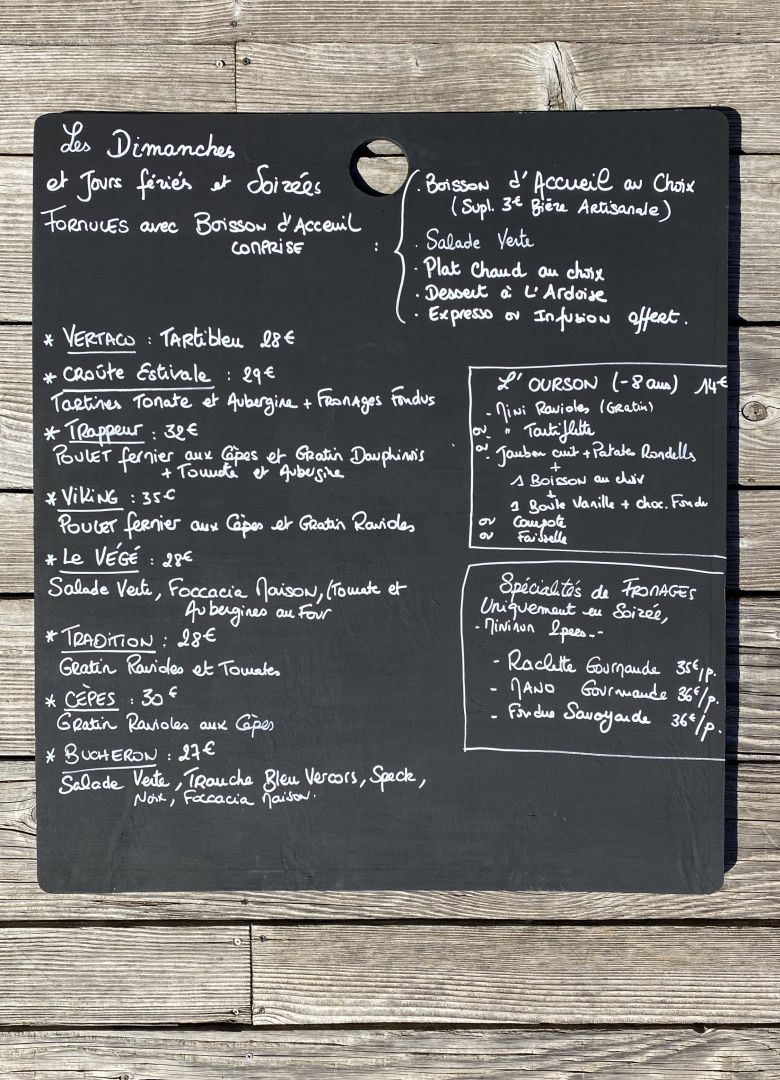 Les Dimanches
et Jours fériés et Soirées
FORMULES avec BOISSON d'Acceuil
COMPRISE :
. BOISSON d'ACCUEIL au Choix
(Supl. 3€ Bière Artisanale)
. Salade Verte
. Plat Chaud au choix
. Dessert à L'Ardoise
. Expresso ou Infusion offert.
* VERTACO : TARTibleu 28€
* CROÛTE Estivale : 29€
Tartines Tomate et Aubergine + FROMAGES Fondus
* TRAPPEUR : 32€
POULET fermier aux Cèpes et Gratin Dauphinois
+ Tomate et Aubergine
* VIKING : 35€
POULET fermier aux Cèpes et Gratin Ravioles
* LE VÉGÉ : 28€
Salade Verte, Foccacia Maison, (Tomate et
Aubergines au Four
* TRADITION : 28€
Gratin Ravioles et Tomates
* CÈPES : 30€
GRatin Ravioles aux Cèpes
* BUCHERON : 27€
Salade Verte, Tranche Bleu Vercors, Speck,
Noix, Foccacia Maison.
L'OURSON (-8 ans) 14€
- Mini Ravioles (Gratin)
ou " Tartiflette
ou Jambon cuit + Patates Rondells
+
1 BOISSON au choix
+
1 Boule Vanille + choc. Fondu
ou Compote
ou Faisselle
Spécialités de FROMAGES
Uniquement en Soirée,
- Minimun 2pers--
- Raclette Gourmande 35€/p.
- MANO Gourmande 36€/p.
- Fondue Savoyarde 36€/p.